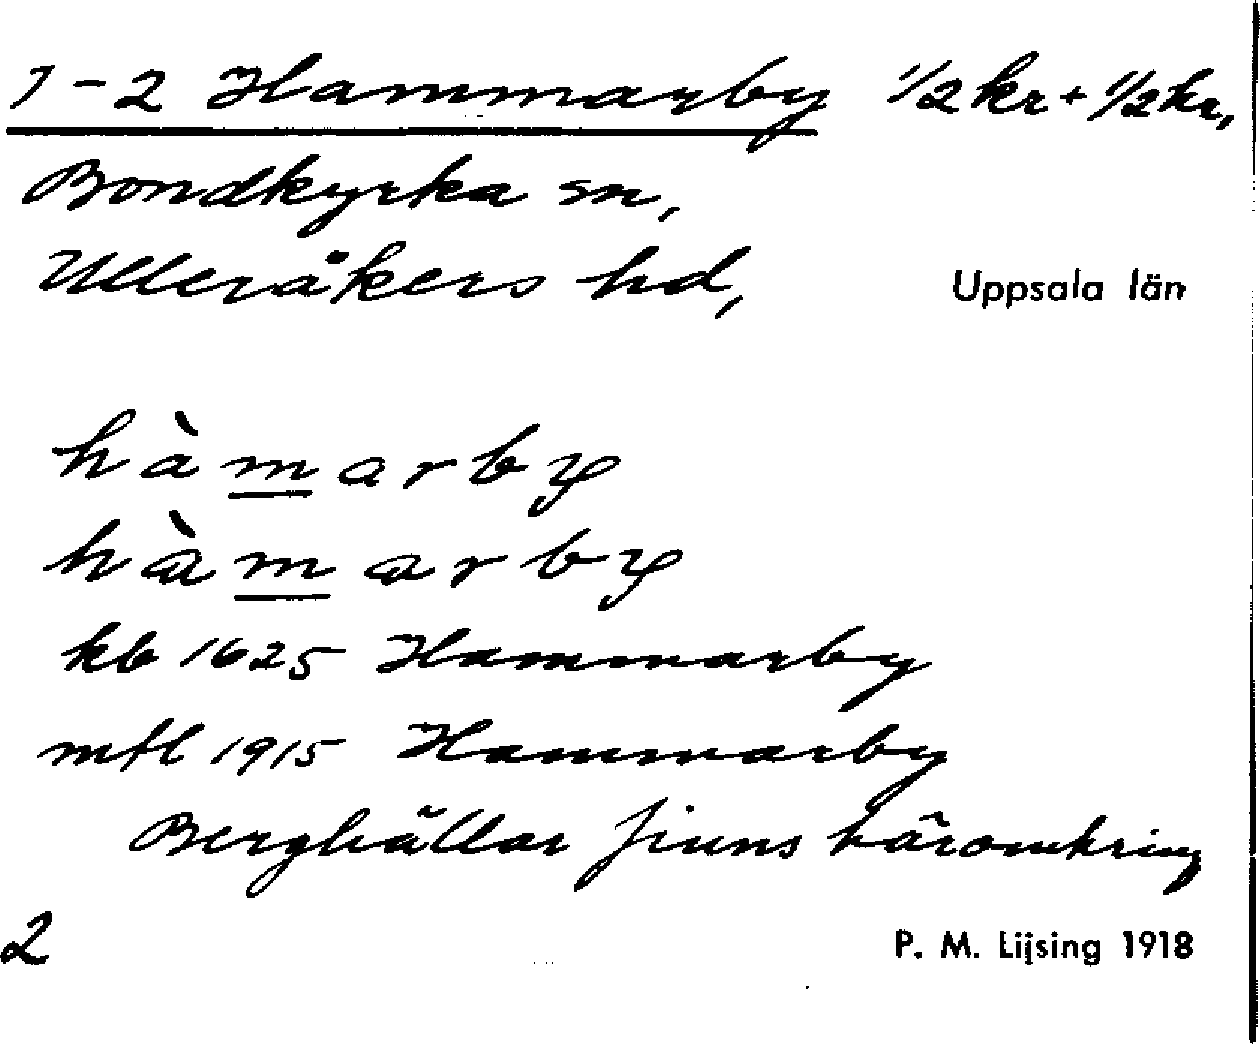 1-2 Hammarby 1/2 kr + 1/2 kr,
Bondkyrka sn,
Ulleråkers hd,
Uppsala län
hàmarby
hàmarby
kb 1625 Hammarby
mtl 1915 Hammarby
Berghällar finns häromkring
2
P. M. Lijsing 1918